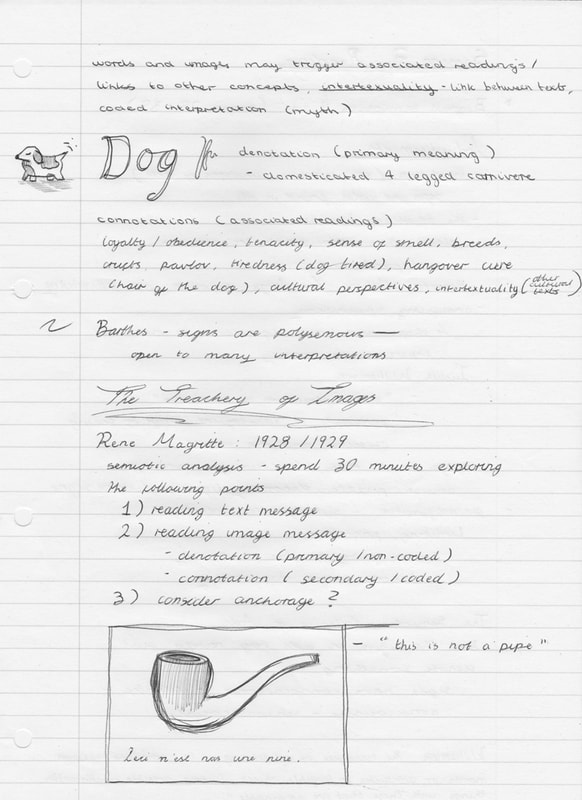 words and images may trigger associated readings/
links to other concepts, intertexuality - link between texts,
coded interpretation (myth)
Dog
denotation (primary meaning)
- domesticated 4 legged carnivere
connotations (associated readings)
loyalty / obedience, tenacity, sense of smell, breeds,
crufts, pavlov, tiredness (dog tired), hangover cure
(hair of the dog), cultural perspectives, intertextuality (other cultural texts)
Barthes - signs are polysemous —
open to many interpretations
The Treachery of Images
Rene Magritte : 1928 / 1929
semiotic analysis - spend 30 minutes exploring
the following points
1) reading text message
2) reading image message
- denotation (primary / non-coded)
- connotation ( secondary / coded)
3) consider anchorage ?
- "this is not a pipe"
Ceci n'est pas une pipe.